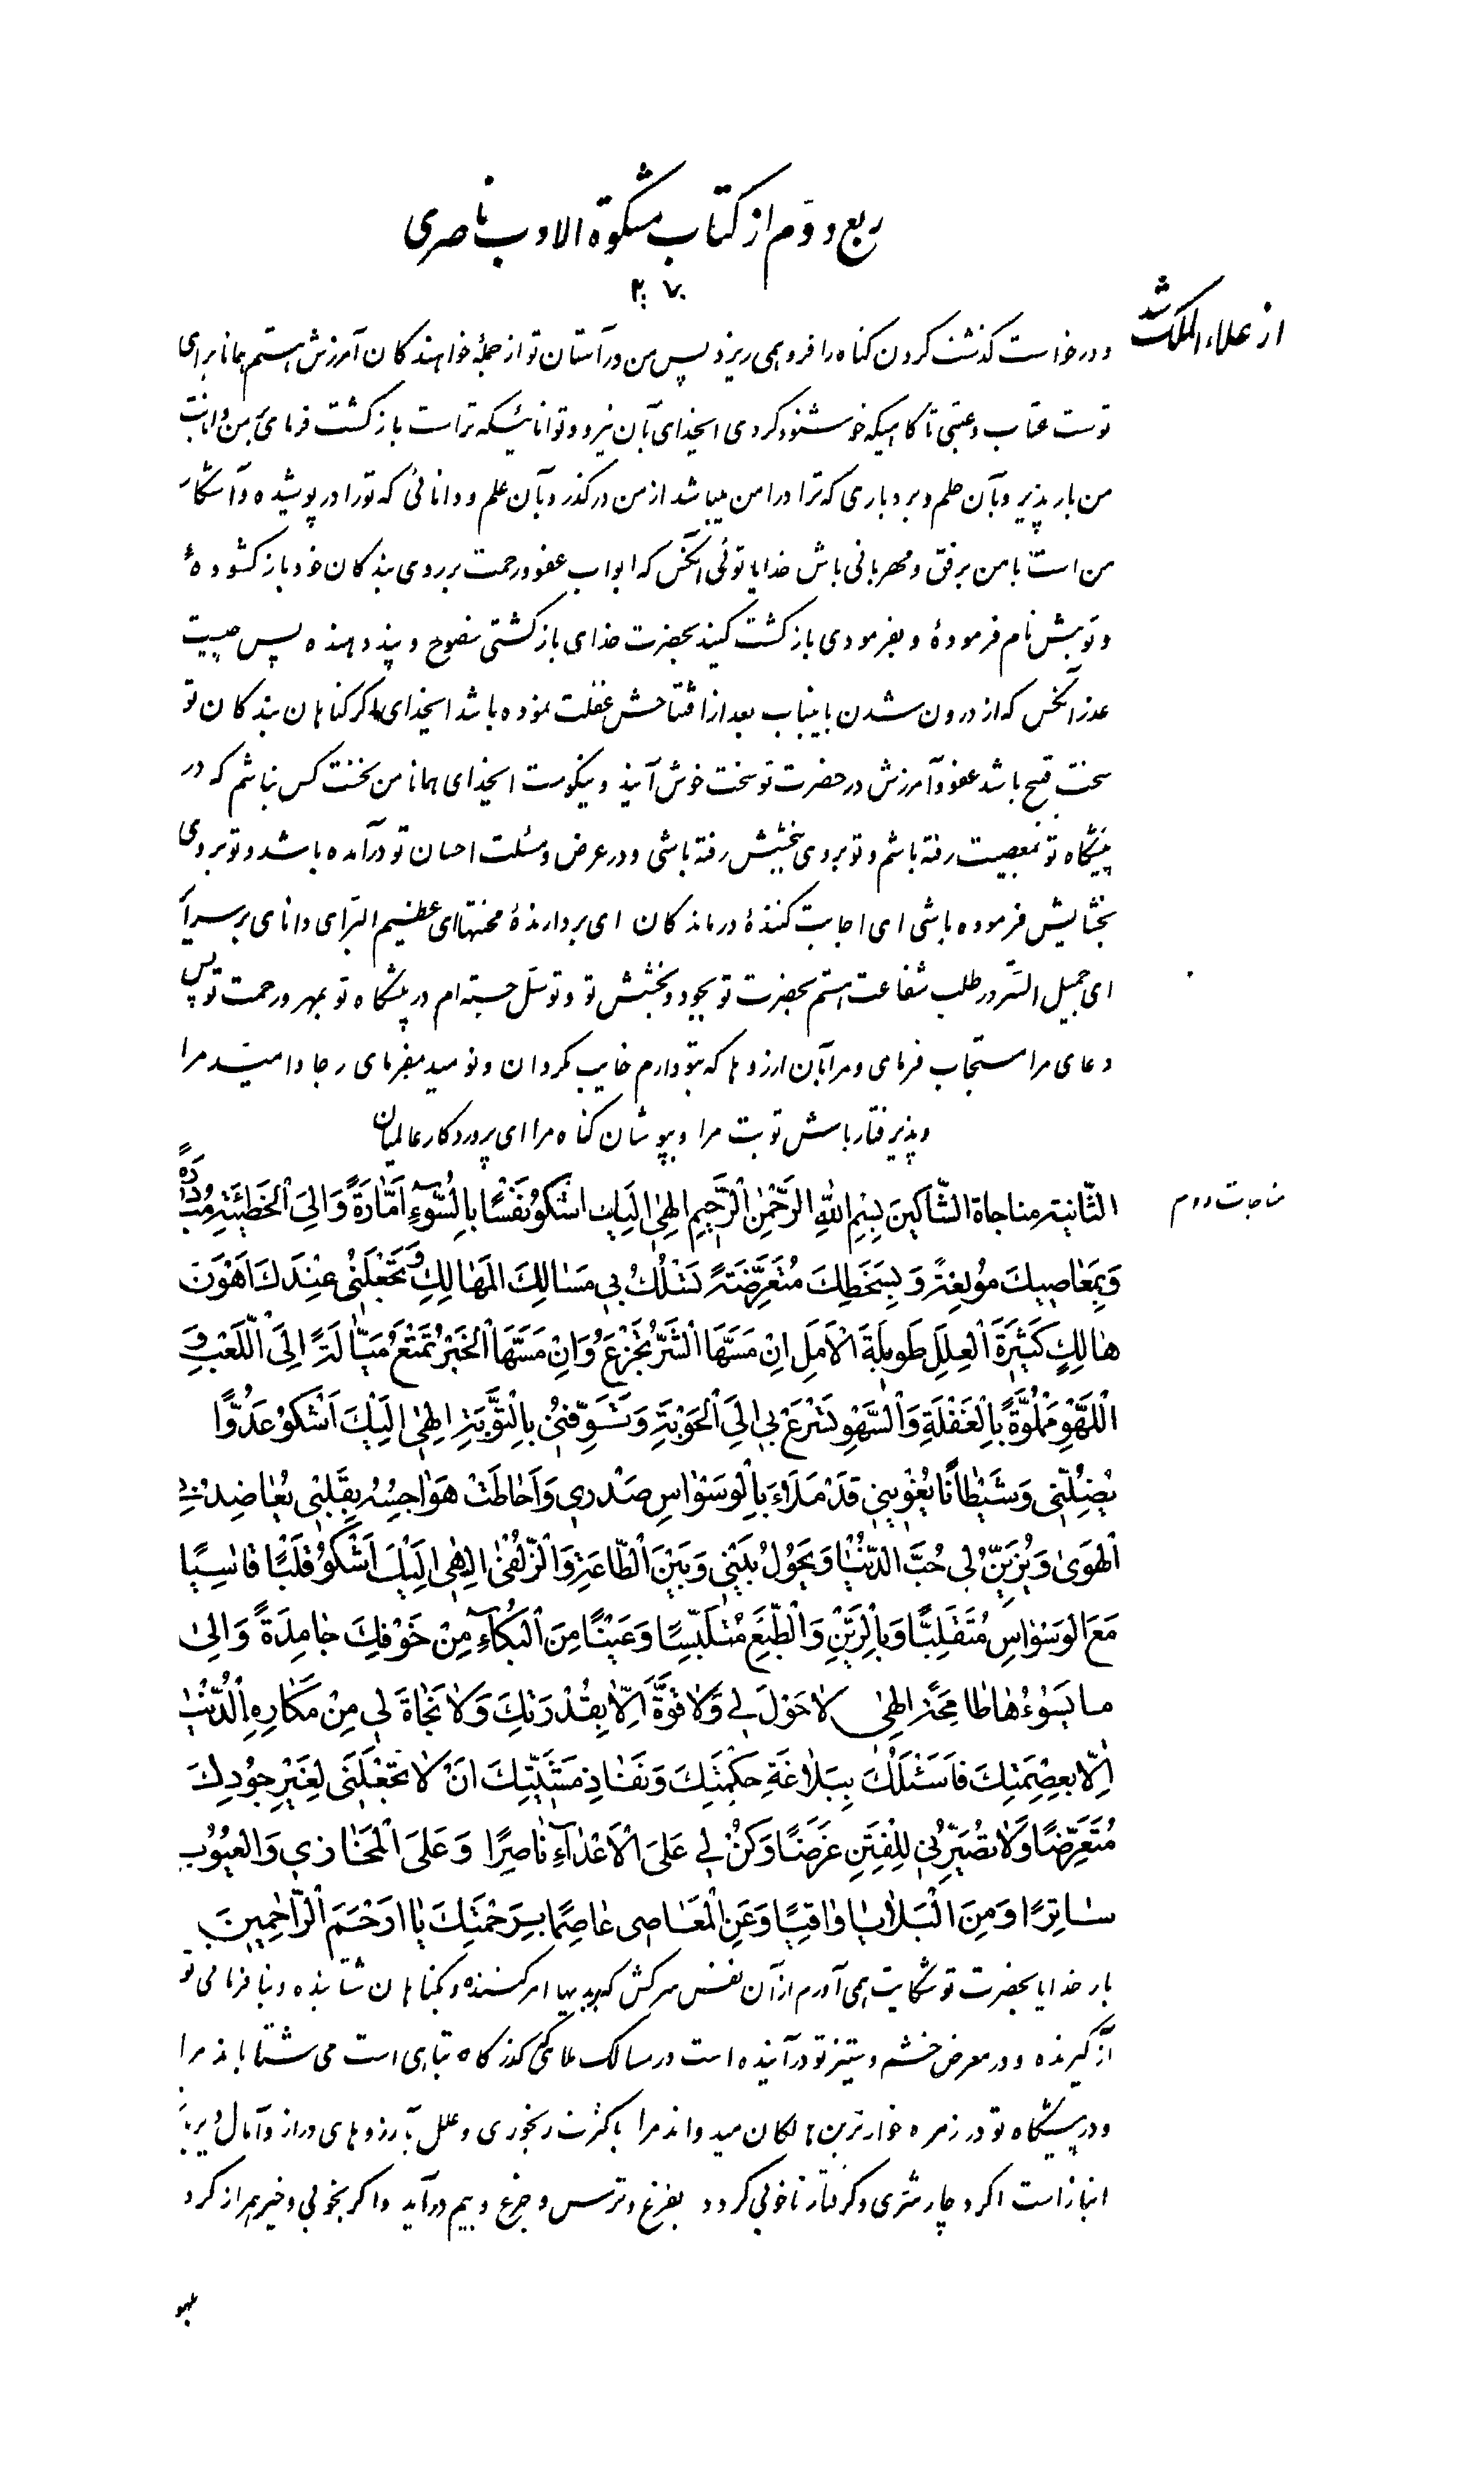 ربع دوّم از کتاب مشکوة الادب ناصری
۲۰۷
از علاء الملک شد
و درخواست کذشت کردن کناه را فرو همی ریزد پس من در آستان تو از جملهٔ خواهندکان آمرزش هستم همانا برای
تو است عتاب و عتبی تا کاهیکه خوشنود کردی ایخدای بآن نیرو و توانائیکه تراست بازکشت فرمای بر من و انابت
من بار پذیر و بآن حلم و بردباری که ترا در امن میباشد از من درکذر و بآن علم و دانائی که تو را در پوشیده و آشکار
من است با من برفق و مهربانی باش خدایا توئی آنکس که ابواب عفو و رحمت بر روی بندکان خود بازکشودهٔ
و توبتش نام فرمودهٔ و بفرمودی بازکشت کنید بحضرت خدای بازکشتی نصوح و پند دهنده پس چیست
عذر آنکس که از درون شدن باینباب بعد از افتتاحش غفلت نموده باشد ایخدای اکر کناهان بندکان تو
سخت قبیح باشد عفو و آمرزش در حضرت تو سخت خوش آیند و نیکوست ایخدای همانا من نخست کس نباشم که در
پیشکاه تو بمعصیت رفته باشم و تو بروی ببخشش رفته باشی و در عرض و مسئلت احسان تو درآمده باشد و تو بر وی
بخشایش فرموده باشی ای اجابت کنندهٔ درماندکان ای بردارندهٔ محنتهای عظیم البرّ ای دانای بر سرایر
ای جمیل السّتر در طلب شفاعت هستم بحضرت تو بجود و بخشش تو و توسّل جسته‌ام در پیشکاه تو بمهر و رحمت تو پس
دعای مرا مستجاب فرمای و مرا بآن ارزوها که بتو دارم خایب مکردان و نومید مفرمای رجا و امید مرا
و پذیرفتار باش توبت مرا و بپوشان کناه مرا ای پروردکار عالمیان
مناجات دوم
الثّانیة مناجاة الشّاکینَ بِسْمِ اللّهِ الرَّحْمٰنِ الرَّحیمِ اِلهٰی اِلَیْكَ اَشْکُو نَفْسًا بِالسُّوۤءِ اَمّارَةً وَاِلَی الْخَطٰیئَةِ مُبادِرَةً
وَبِمَعاصیكَ مُولِعَةً وَبِسَخَطِكَ مُتَعَرِّضَةً تَسْلُكُ بی مَسٰالِكَ الْمَهٰالِكِ وَتَجْعَلُنی عِنْدَكَ اَهْوَنَ
هٰالِكٍ کَثیرَةَ الْعِلَلِ طَویلَةَ الْاَمَلِ اِنْ مَسَّهَا الشَّرُّ تَجْزَعُ وَاِنْ مَسَّهَا الْخَیْرُ تَمْنَعُ مَیّٰالَةً اِلَی اللَّعْبِ وَ
اللَّهْوِ مَمْلُوَّةً بِالْغَفْلَةِ وَالسَّهْوِ تَسْرَعُ بی اِلَی الْحَوْبَةِ وَتُسَوِّفُنی بِالتَّوْبَةِ اِلهٰی اِلَیْكَ اَشْکُو عَدُوًّا
یُضِلُّنی وَشَیْطٰانًا یُغْوینی قَدْ مَلَاَءَ بِالْوَسْوٰاسِ صَدْری وَاَحٰاطَتْ هَوٰاجِسُهُ بِقَلْبی یُعٰاضِدُ لِیَ
الْهَویٰ وَیُزَیِّنُ لی حُبَّ الدُّنْیٰا وَیَحُولُ بَیْنی وَبَیْنَ الطّٰاعَةِ وَالزُّلْفیٰ اِلهٰی اِلَیْكَ اَشْکُو قَلْبًا قٰاسِیًا
مَعَ الْوَسْوٰاسِ مُتَقَلِّبًا وَبِالرَّیْنِ وَالطَّبْعِ مُتَلَبِّسًا وَعَیْنًا مِنَ الْبُکٰۤاءِ مِنْ خَوْفِكَ جٰامِدَةً وَاِلیٰ
مٰا یَسُوۤءُهٰا طٰامِحَةً اِلهٰی لاٰ حَوْلَ لی وَلاٰ قُوَّةَ اِلّاٰ بِقُدْرَتِكَ وَلاٰ نَجٰاةَ لی مِنْ مَکٰارِهِ الدُّنْیٰا
اِلّاٰ بِعِصْمَتِكَ فَاَسْئَلُكَ بِبَلاٰغَةِ حِکْمَتِكَ وَنَفٰاذِ مَشِیَّتِكَ اَنْ لاٰ تَجْعَلَنی لِغَیْرِ جُودِكَ
مُتَعَرِّضًا وَلاٰ تُصَیِّرَنی لِلْفِتَنِ غَرَضًا وَکُنْ لی عَلَی الْاَعْدٰۤاءِ نٰاصِرًا وَعَلَی الْمَخٰازی وَالْعُیُوبِ
سٰاتِرًا وَمِنَ الْبَلاٰیٰا وٰاقِیًا وَعَنِ الْمَعٰاصی عٰاصِمًا بِرَحْمَتِكَ یٰا اَرْحَمَ الرّٰاحِمینَ
بار خدایا بحضرت تو شکایت همی آورم از آن نفس سرکش که ببدیها امر کننده و بکناهان شتابنده و بنافرمانی تو
آز کیرنده و در معرض خشم و ستیز تو درآینده است در مسالک مهالکی کذرکاه تباهی است می شتاباند مرا
و در پیشکاه تو در زمره خوارترین هالکان میدواند مرا با کثرت رنجوری و علل بآرزوهای دراز و آمال دیرباز
انباز است اکر دچار شرّی و کرفتار ناخوبی کردد بفزع و ترس و جزع و بیم درآید و اکر بخوبی و خیر همراز کردد
بلهو